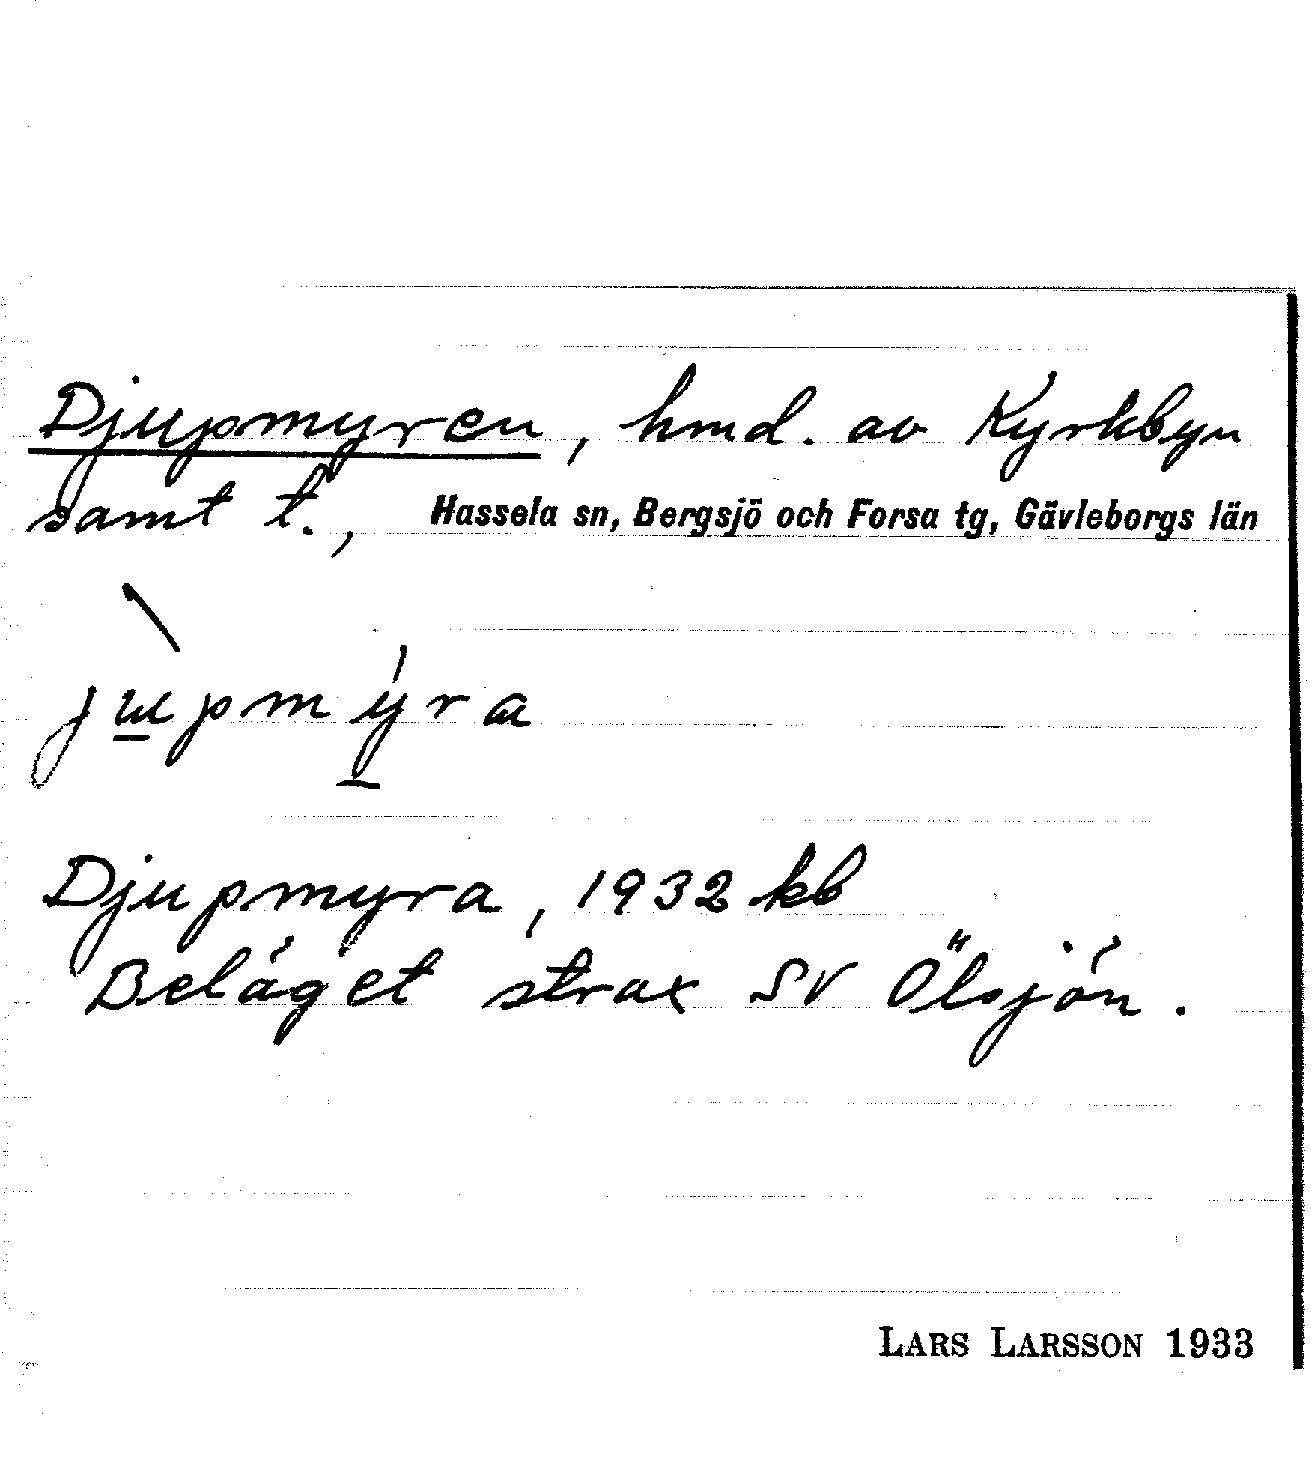 Djupmyren, hmd. av Kyrkbyn
samt t., Hassela sn, Bergsjö och Forsa tg, Gävleborgs län
jɯ̲̀pmý̲ra
Djupmyra, 1932 kb
Beläget strax SV Ölsjön.
LARS LARSSON 1933